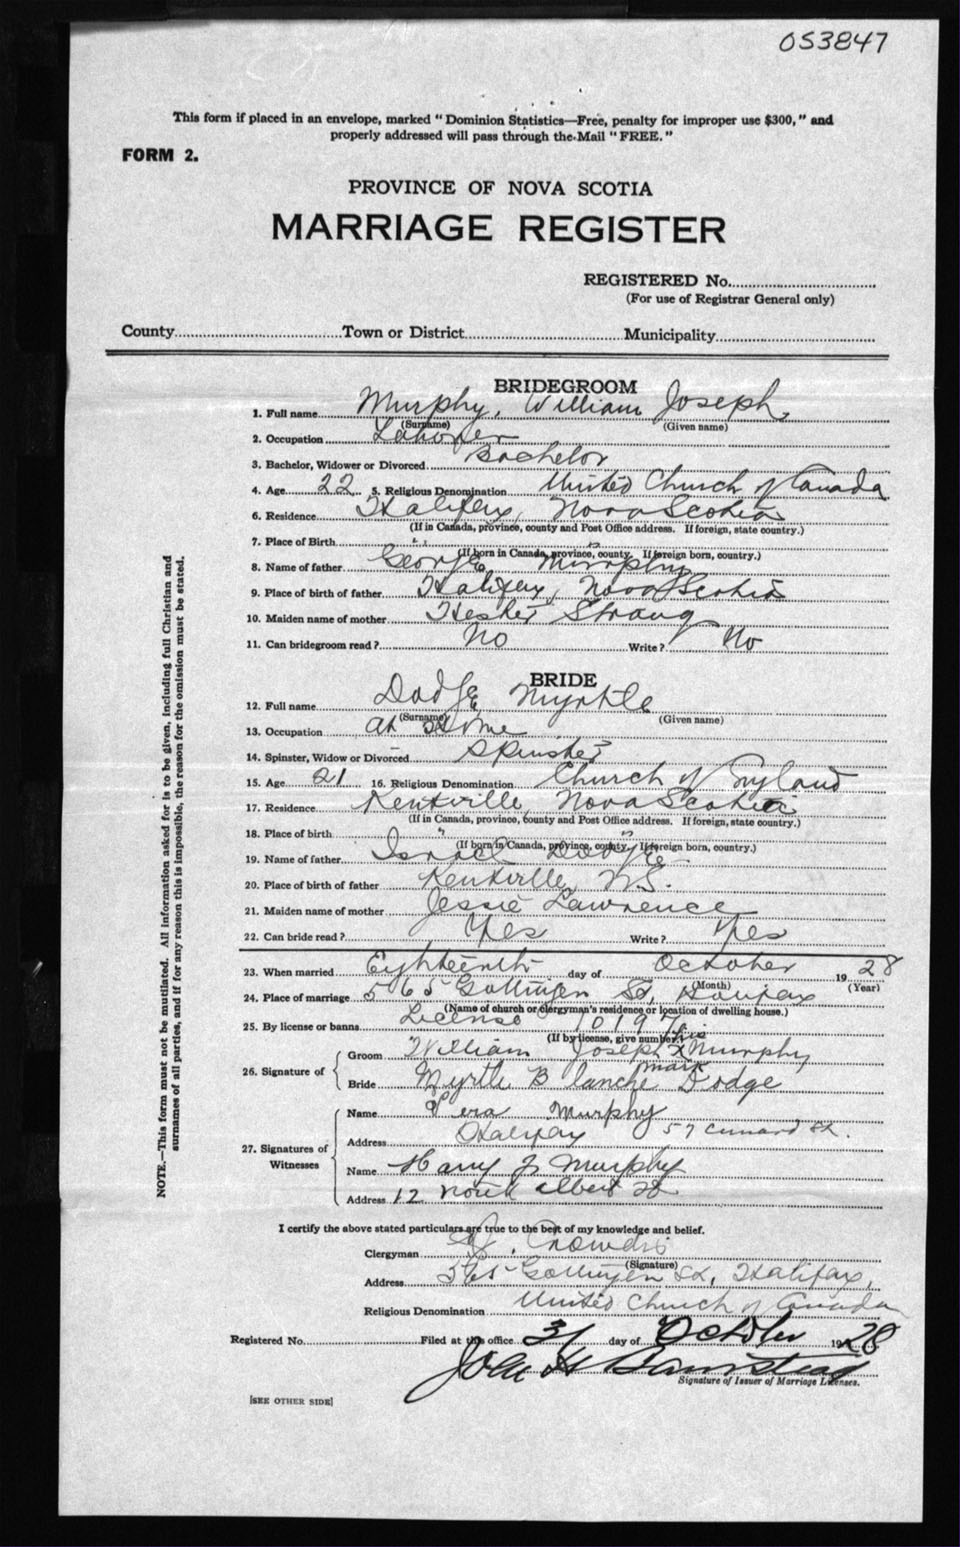 053847
This form if placed in an envelope, marked "Dominion Statistics—Free, penalty for improper use $300," and
properly addressed will pass through the Mail "FREE."
FORM 2.
PROVINCE OF NOVA SCOTIA
MARRIAGE REGISTER
REGISTERED No.
(For use of Registrar General only)
County Town or District Municipality
BRIDEGROOM
1. Full name Murphy, William Joseph
(Surname) (Given name)
2. Occupation Laborer
3. Bachelor, Widower or Divorced Bachelor
4. Age 22 5. Religious Denomination United Church of Canada
6. Residence Halifax, Nova Scotia
(If in Canada, province, county and Post Office address. If foreign, state country.)
7. Place of Birth " "
(If born in Canada, province, county. If foreign born, country.)
8. Name of father George Murphy
9. Place of birth of father Halifax, Nova Scotia
10. Maiden name of mother Hester Strang
11. Can bridegroom read? No Write? No
BRIDE
12. Full name Dodge Myrtle
(Surname) (Given name)
13. Occupation at Home
14. Spinster, Widow or Divorced Spinster
15. Age 21 16. Religious Denomination Church of England
17. Residence Kentville, Nova Scotia
(If in Canada, province, county and Post Office address. If foreign, state country.)
18. Place of birth " "
(If born in Canada, province, county. If foreign born, country.)
19. Name of father Israel Dodge
20. Place of birth of father Kentville, N.S.
21. Maiden name of mother Jessie Lawrence
22. Can bride read? Yes Write? Yes
23. When married Eighteenth day of October 19 28
(Month) (Year)
24. Place of marriage 565 Gottingen St, Halifax
(Name of church or clergyman's residence or location of dwelling house.)
25. By license or banns License
(If by license, give number.)
his
26. Signature of Groom William Joseph X Murphy
mark
Bride Myrtle Blanche Dodge
27. Signatures of Witnesses
Name Vera Murphy
Address Halifax 57 Cunard St.
Name Harry J Murphy
Address 12 North Albert St
I certify the above stated particulars are true to the best of my knowledge and belief.
Clergyman Crowdis
(Signature)
Address 565 Gottingen St, Halifax,
Religious Denomination United Church of Canada
Registered No. Filed at this office 31 day of October 1928
John H Barnstead
Signature of Issuer of Marriage Licenses.
[SEE OTHER SIDE]
NOTE.—This form must not be mutilated. All information asked for is to be given, including full Christian and
surnames of all parties, and if for any reason this is impossible, the reason for the omission must be stated.